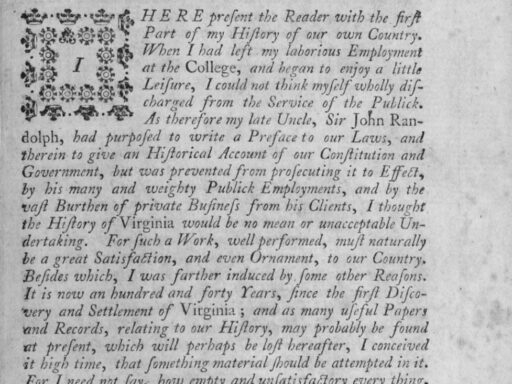 I HERE preſent the Reader with the firſt
Part of my Hiſtory of our own Country.
When I had left my laborious Employment
at the College, and began to enjoy a little
Leiſure, I could not think myſelf wholly diſ-
charged from the Service of the Publick.
As therefore my late Uncle, Sir John Ran-
dolph, had purpoſed to write a Preface to our Laws, and
therein to give an Hiſtorical Account of our Conſtitution and
Government, but was prevented from proſecuting it to Effect,
by his many and weighty Publick Employments, and by the
vaſt Burthen of private Buſineſs from his Clients, I thought
the Hiſtory of Virginia would be no mean or unacceptable Un-
dertaking. For ſuch a Work, well performed, muſt naturally
be a great Satisfaction, and even Ornament, to our Country.
Beſides which, I was farther induced by ſome other Reaſons.
It is now an hundred and forty Years, ſince the firſt Diſco-
very and Settlement of Virginia; and as many uſeful Papers
and Records, relating to our Hiſtory, may probably be found
at preſent, which will perhaps be loſt hereafter, I conceived
it high time, that ſomething material ſhould be attempted in it.
For I need not ſay, how empty and unſatisfactory every thing